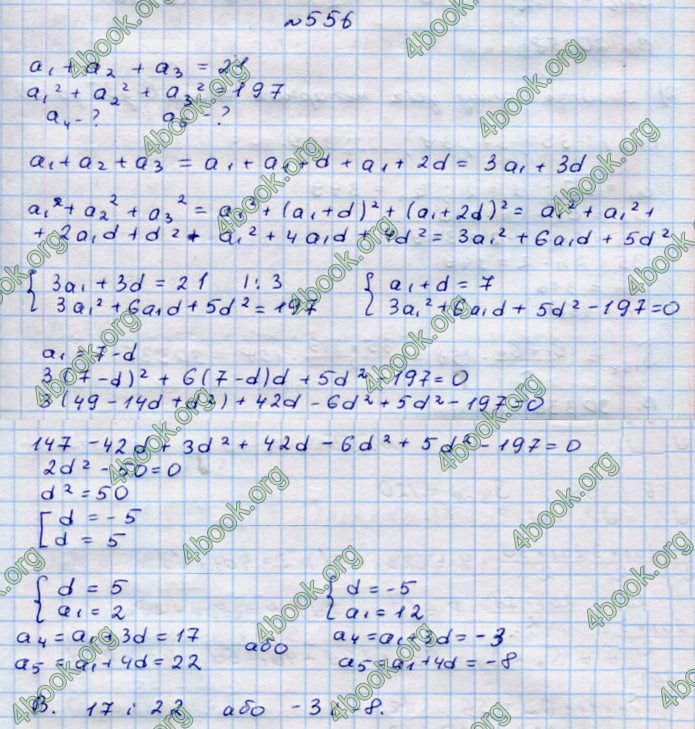 №556
a₁ + a₂ + a₃ = 21
a₁² + a₂² + a₃² = 197
a₄ - ? a₅ - ?
a₁ + a₂ + a₃ = a₁ + a₁ + d + a₁ + 2d = 3a₁ + 3d
a₁² + a₂² + a₃² = a₁² + (a₁+d)² + (a₁+2d)² = a₁² + a₁² +
+ 2a₁d + d² + a₁² + 4a₁d + 4d² = 3a₁² + 6a₁d + 5d²
{ 3a₁ + 3d = 21 |:3 { a₁ + d = 7
{ 3a₁² + 6a₁d + 5d² = 197 { 3a₁² + 6a₁d + 5d² - 197 = 0
a₁ = 7 - d
3(7-d)² + 6(7-d)d + 5d² - 197 = 0
3(49 - 14d + d²) + 42d - 6d² + 5d² - 197 = 0
147 - 42d + 3d² + 42d - 6d² + 5d² - 197 = 0
2d² - 50 = 0
d² = 50
[ d = -5
[ d = 5
{ d = 5 { d = -5
{ a₁ = 2 { a₁ = 12
a₄ = a₁ + 3d = 17 або a₄ = a₁ + 3d = -3
a₅ = a₁ + 4d = 22 a₅ = a₁ + 4d = -8
В. 17 і 22 або -3 і -8.
4book.org